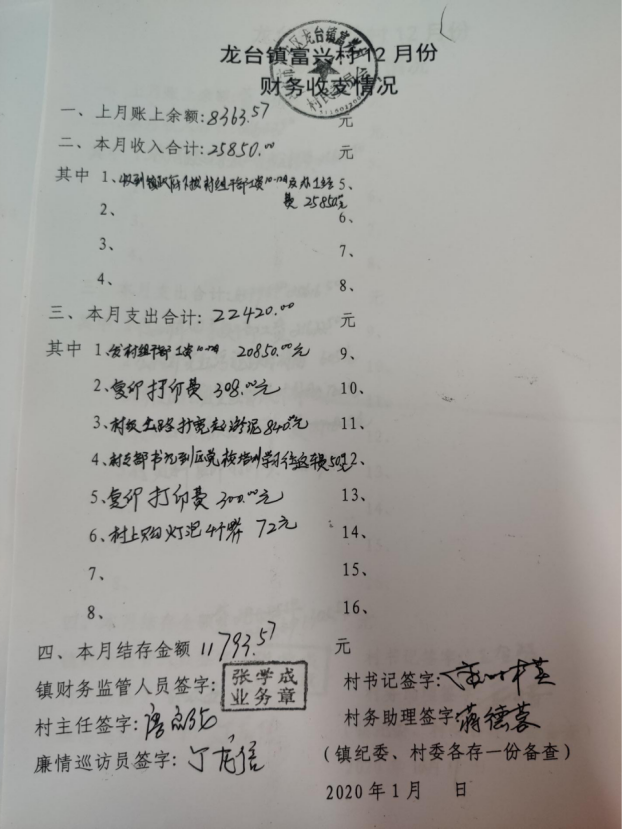 龙台镇富兴村12月份
财务收支情况
一、上月账上余额:8363.57 元
二、本月收入合计:25850.00 元
其中 1、收到镇政府下拨村组干部工资10-12月及办公经费 25850元 5、
2、 6、
3、 7、
4、 8、
三、本月支出合计:22420.00 元
其中 1、发村组干部工资 20850.00元 9、
2、复印打印费 308.00元 10、
3、村级公路打宽 840元 11、
4、村支部书记到区党校培训学习往返车费50元 12、
5、复印打印费 300.00元 13、
6、村上购灯泡4个 72元 14、
7、 15、
8、 16、
四、本月结存金额 11793.57 元
镇财务监管人员签字: 张学成 业务章 村书记签字:
村主任签字: 村务助理签字 蒋德蓉
廉情巡访员签字: 丁龙信 (镇纪委、村委各存一份备查)
2020年1月 日